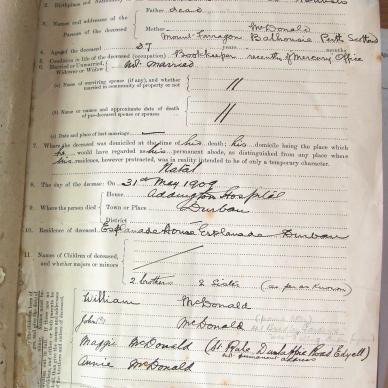 2. Birthplace and Nationality of
Father dead
3. Names and addresses of the
Parents of the deceased
Mother McDonald
Mount Farragon Balhousie Perth Scotland
4. Age of the deceased 37 years months
5. Condition in life of the deceased (occupation) Bookkeeper recently of Mercury Office
6. Married or Unmarried,
Widower or Widow
Not married
(a) Name of surviving spouse (if any), and whether
married in community of property or not "
(b) Name or names and approximate date of death
of pre-deceased spouse or spouses "
(c) Date and place of last marriage
7. Where the deceased was domiciled at the time of his death; his domicile being the place which
he would have regarded as his permanent abode, as distinguished from any place where
his residence, however protracted, was in reality intended to be of only a temporary character.
Natal
8. The day of the decease On 31st May 1909
9. Where the person died
House Addington Hospital
Town or Place Durban
District
10. Residence of deceased Esplanade House Esplanade Durban
11. Names of Children of deceased,
and whether majors or minors
2 brothers 2 Sisters (as far as known)
William McDonald
John McDonald
Maggie McDonald
Annie McDonald